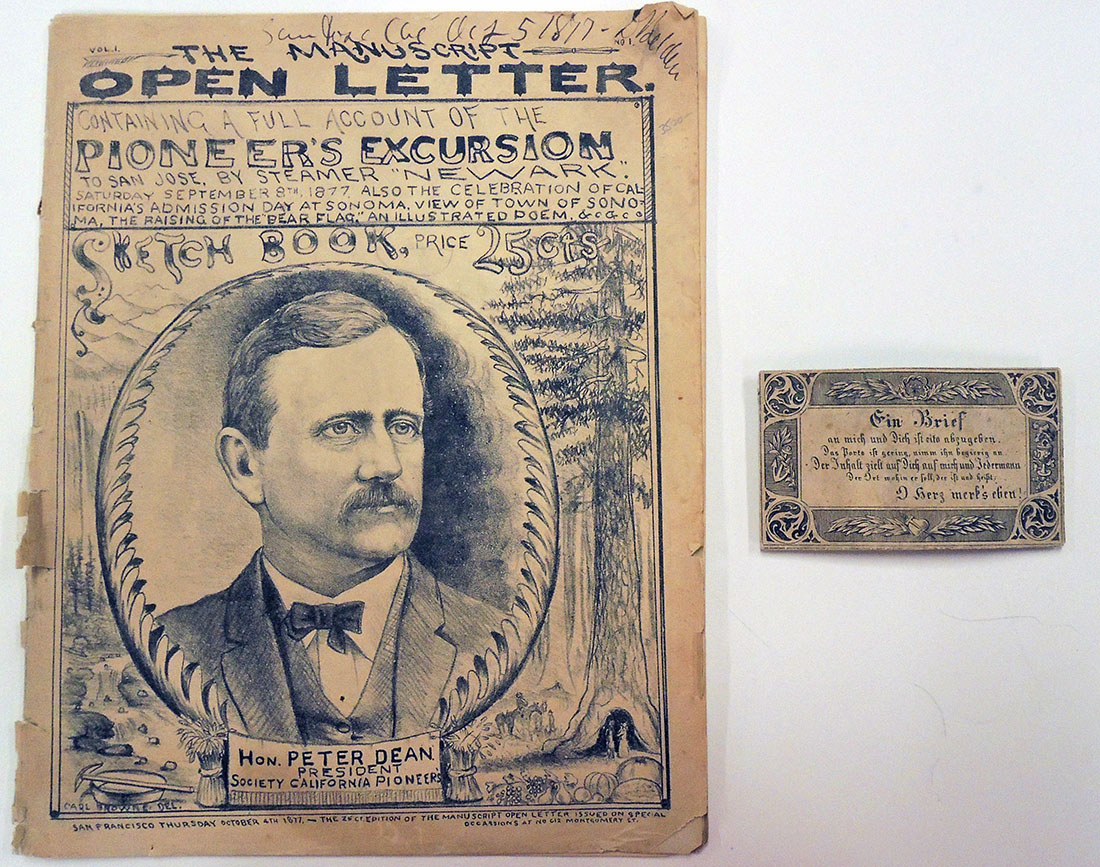 San Jose Cal Oct 5 1877 -
VOL. I. THE MANUSCRIPT NO 1.
OPEN LETTER.
CONTAINING A FULL ACCOUNT OF THE
PIONEER'S EXCURSION
TO SAN JOSE, BY STEAMER "NEWARK".
SATURDAY SEPTEMBER 8TH, 1877 ALSO THE CELEBRATION OF CAL-
IFORNIA'S ADMISSION DAY AT SONOMA, VIEW OF TOWN OF SONO-
MA, THE RAISING OF THE "BEAR FLAG," AN ILLUSTRATED POEM. &c &c
SKETCH BOOK, PRICE 25cts
HON. PETER DEAN.
PRESIDENT
SOCIETY CALIFORNIA PIONEERS
CARL BROWNE. DEL.
SAN FRANCISCO THURSDAY OCTOBER 4TH 1877, — THE 25ct EDITION OF THE MANUSCRIPT OPEN LETTER ISSUED ON SPECIAL
OCCASSIONS AT NO 612 MONTGOMERY ST.
Ein Brief
an mich und Dich ist eito abzugeben.
Das Porto ist gering, nimm ihn begierig an
Der Inhalt zielt auf Dich auf mich und Jedermann
Der Ort wohin er soll, der ist und heißt;
O Herz merk's eben!